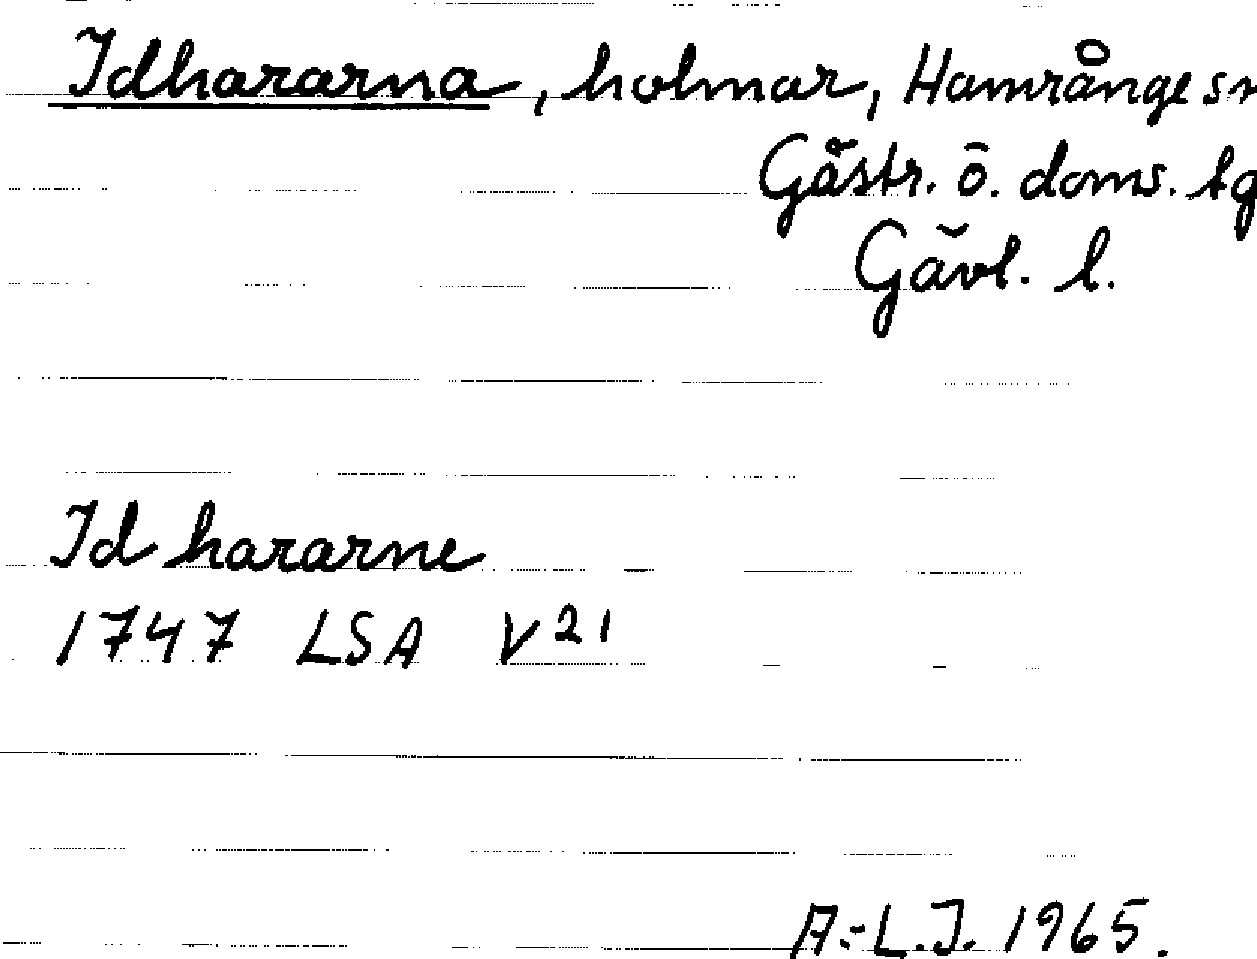 Idhararna, holmar, Hamrånge sn
Gästr. ö. doms. tg
Gävl. l.
Id hararne
1747 LSA V21
A:-L.J. 1965.